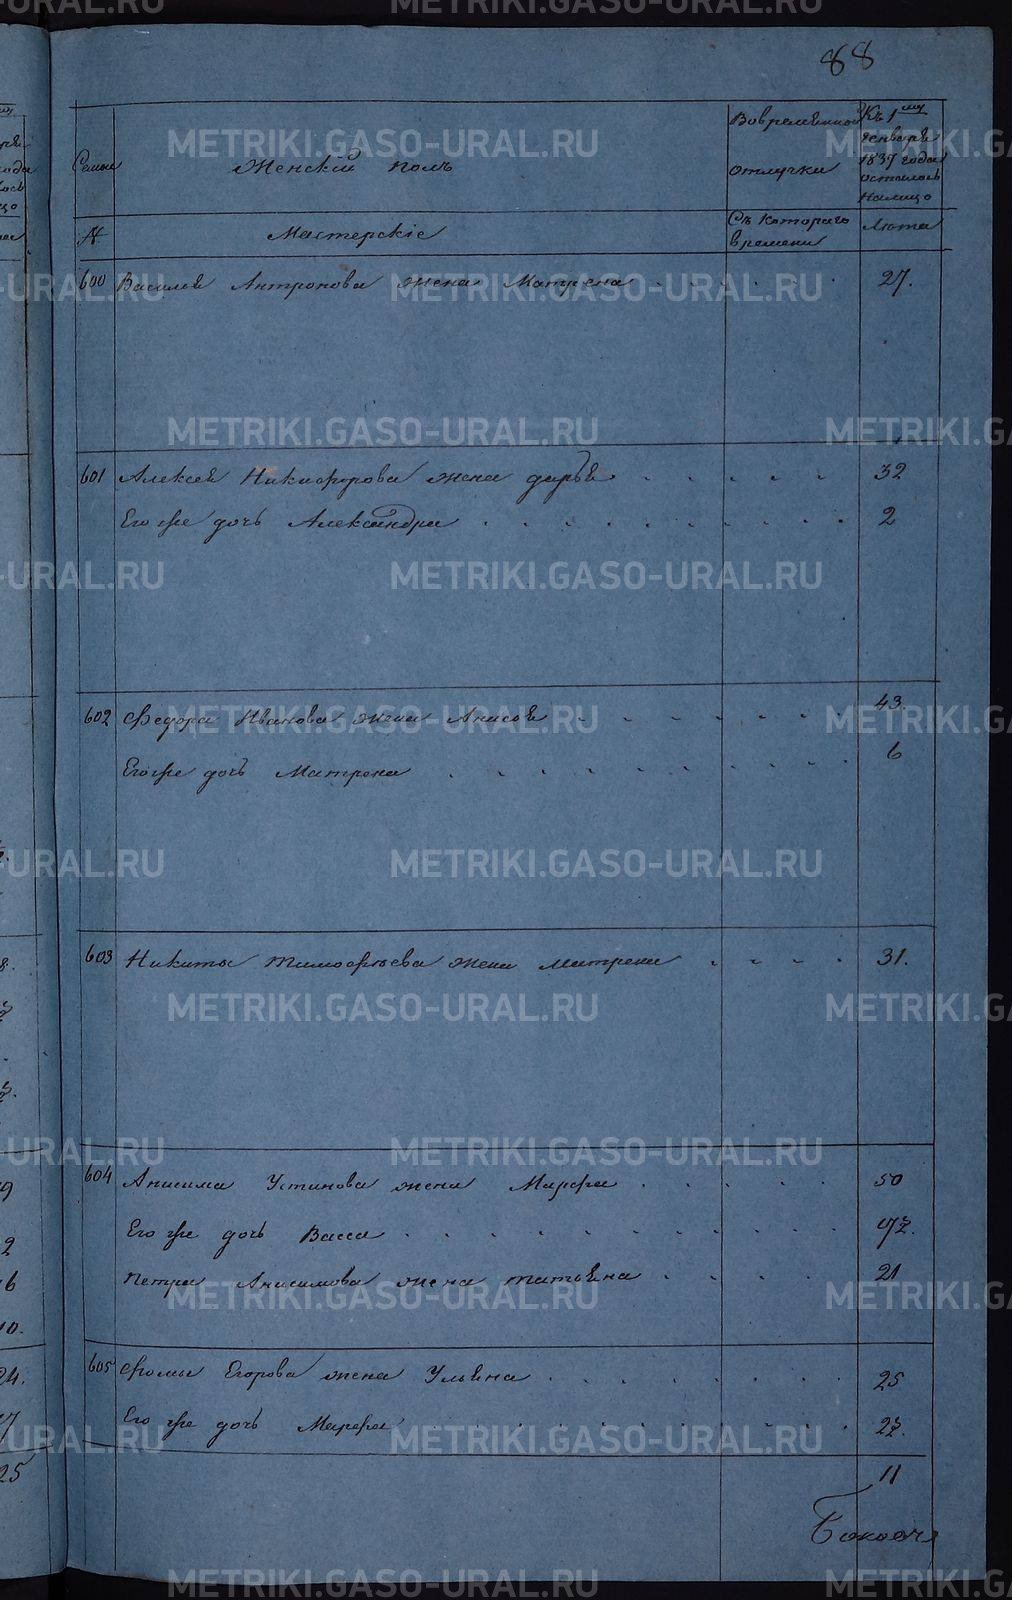 88
Семьи
Женскій полъ
Вовременной отлучки
Къ 1му генваря 1837 года осталось налицо
№
Мастерскіе
Съ котораго времени
Лѣта
600 Василья Антропова жена Матрена 27.
601 Алексея Никифорова жена дарья 32
Его же дочь Александра 2
602 Федора Иванова жена Анисья 43.
Его же дочь Матрена 6
603 Никиты Тимофѣева жена Матрена 31.
604 Анисима Устинова жена Марфа 50
Его же дочь Васса
Петра Анисимова жена татьяна 21
605 Фомы Егорова жена Ульяна 25
Его же дочь Марфа
11
METRIKI.GASO-URAL.RU